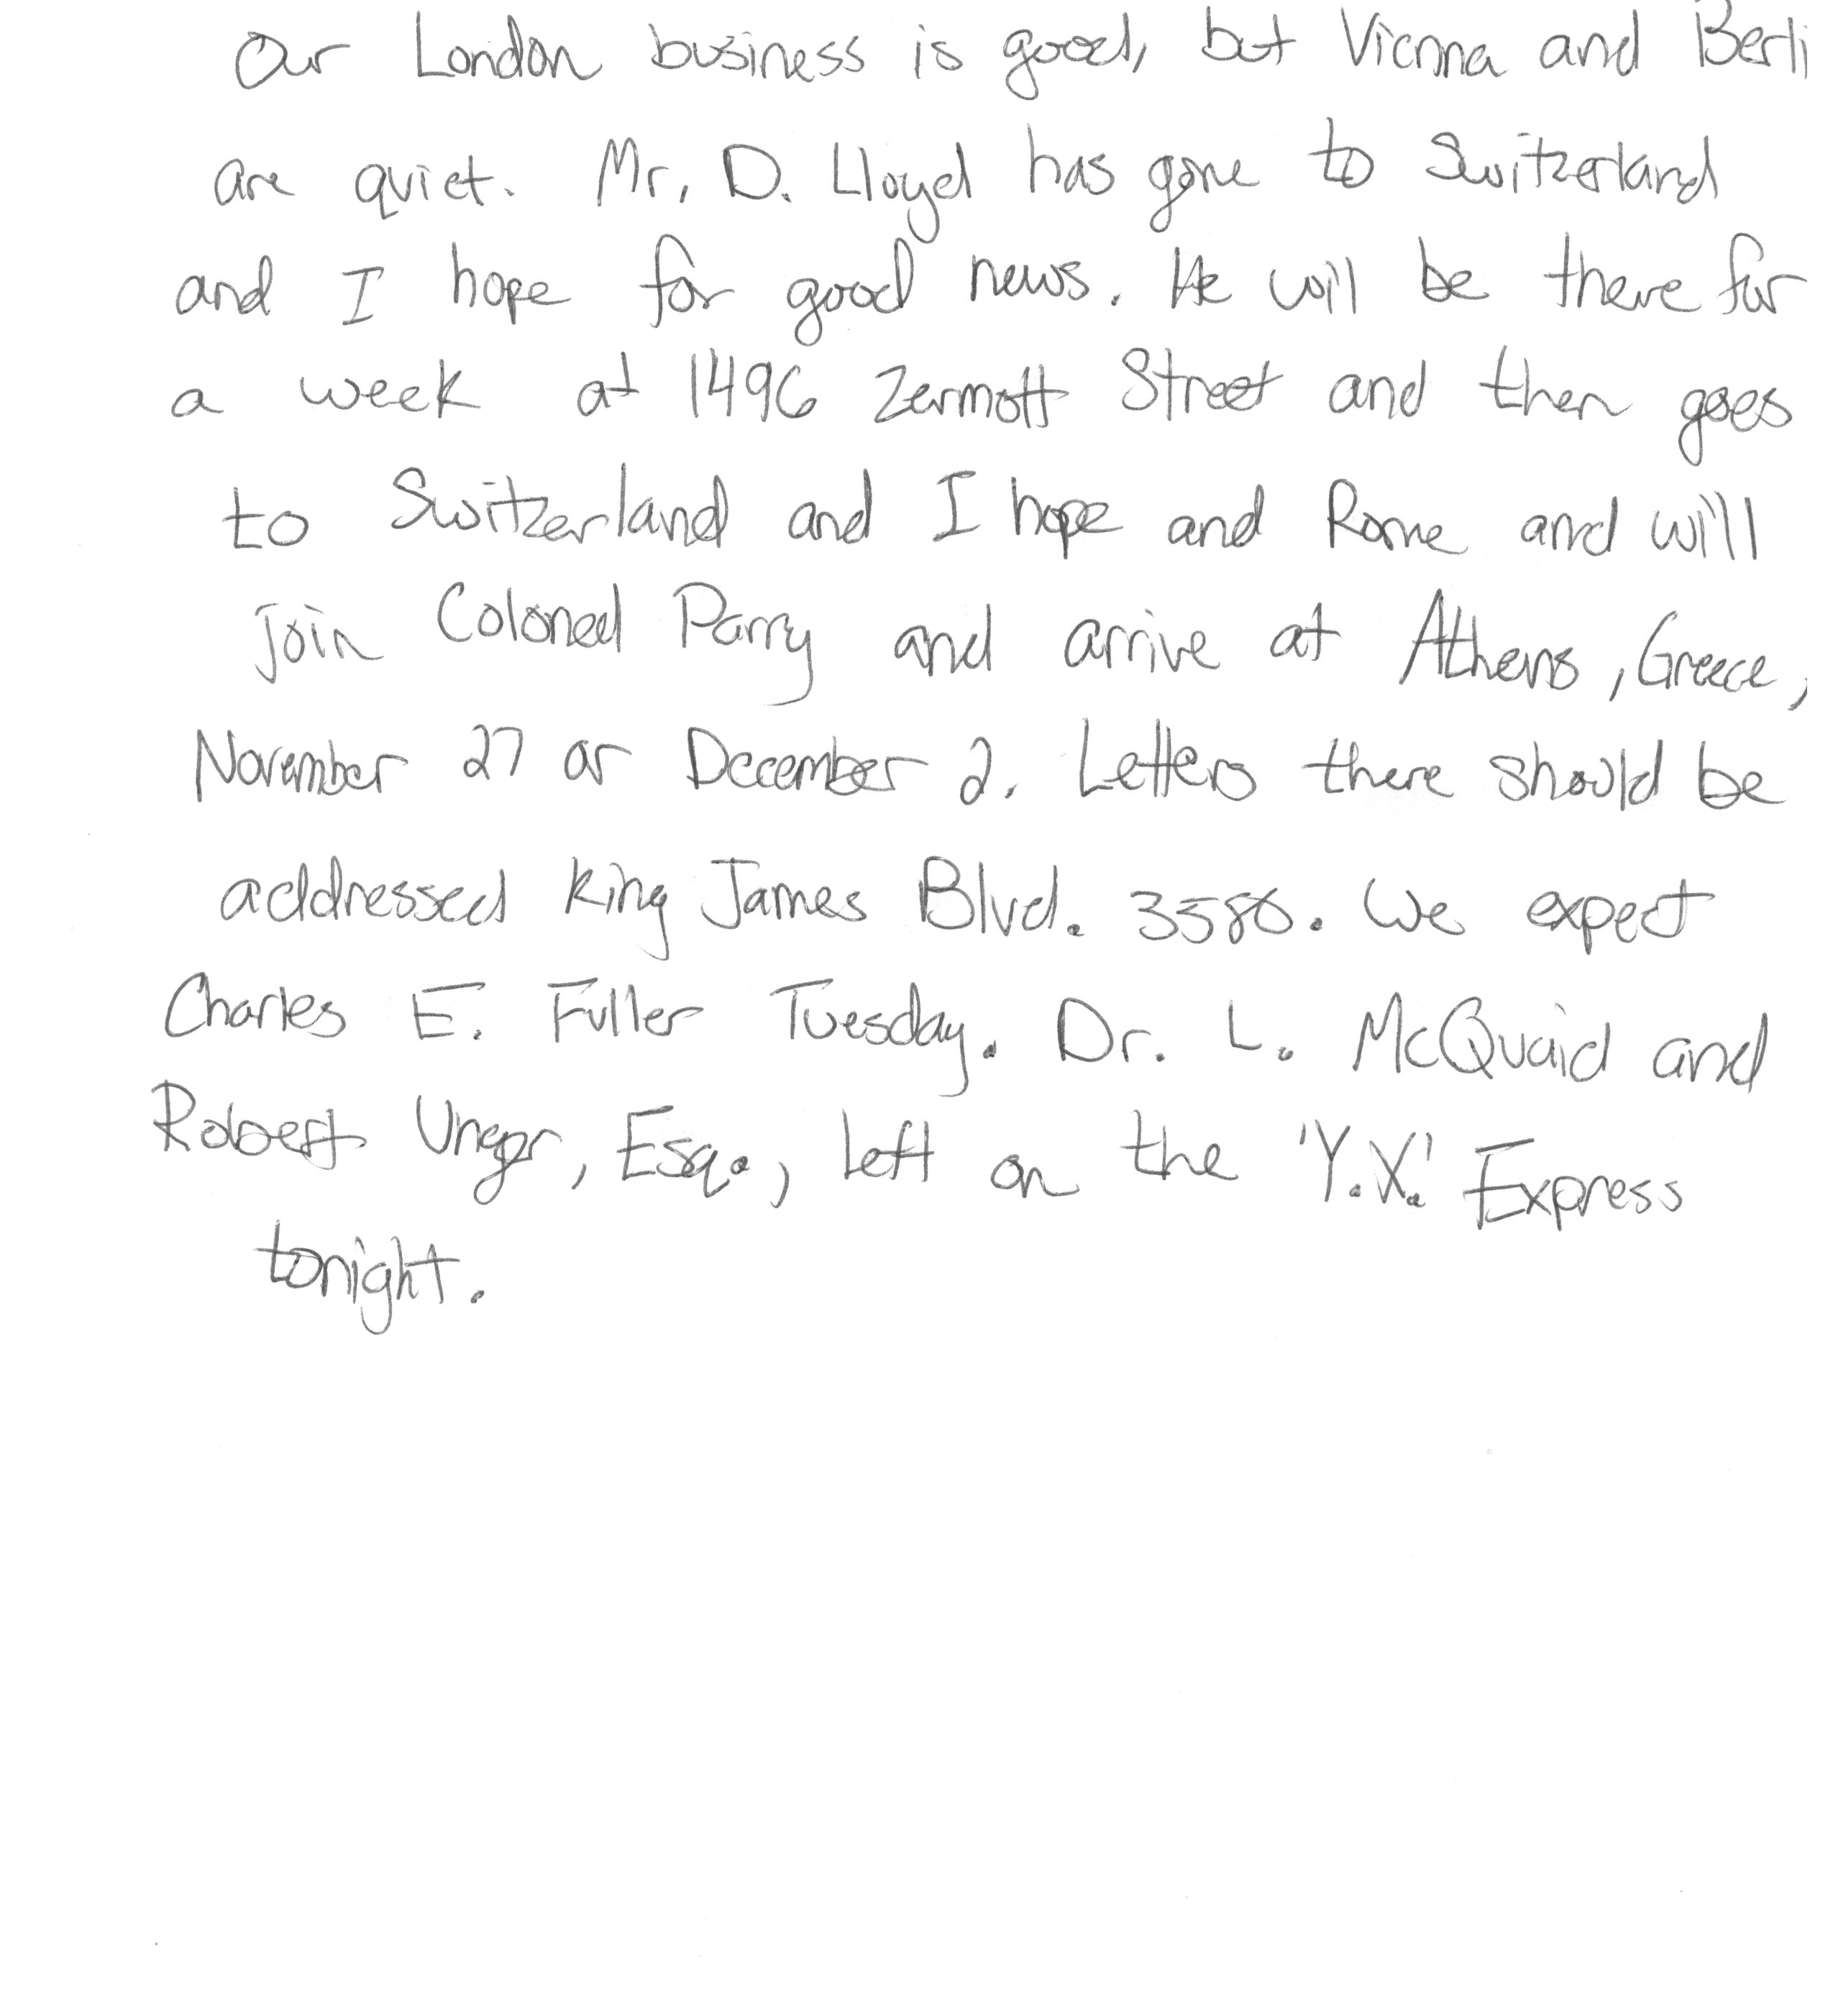 Our London business is good, but Vienna and Berli
are quiet. Mr. D. Lloyd has gone to Switzerland
and I hope for good news. He will be there for
a week at 1496 Zermott Street and then goes
to Switzerland and I hope and Rome and will
join Colonel Parry and arrive at Athens, Greece,
November 27 or December 2. Letters there should be
addressed King James Blvd. 3580. We expect
Charles E. Fuller Tuesday. Dr. L. McQuaid and
Robert Unger, Esq., left on the 'Y.X.' Express
tonight.